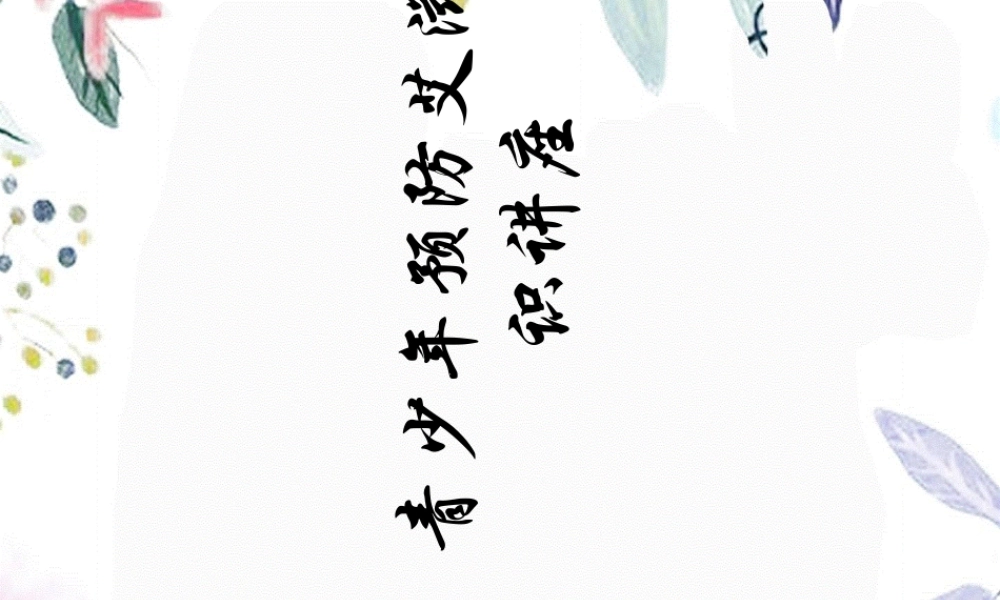 青少年预防艾滋
识讲座